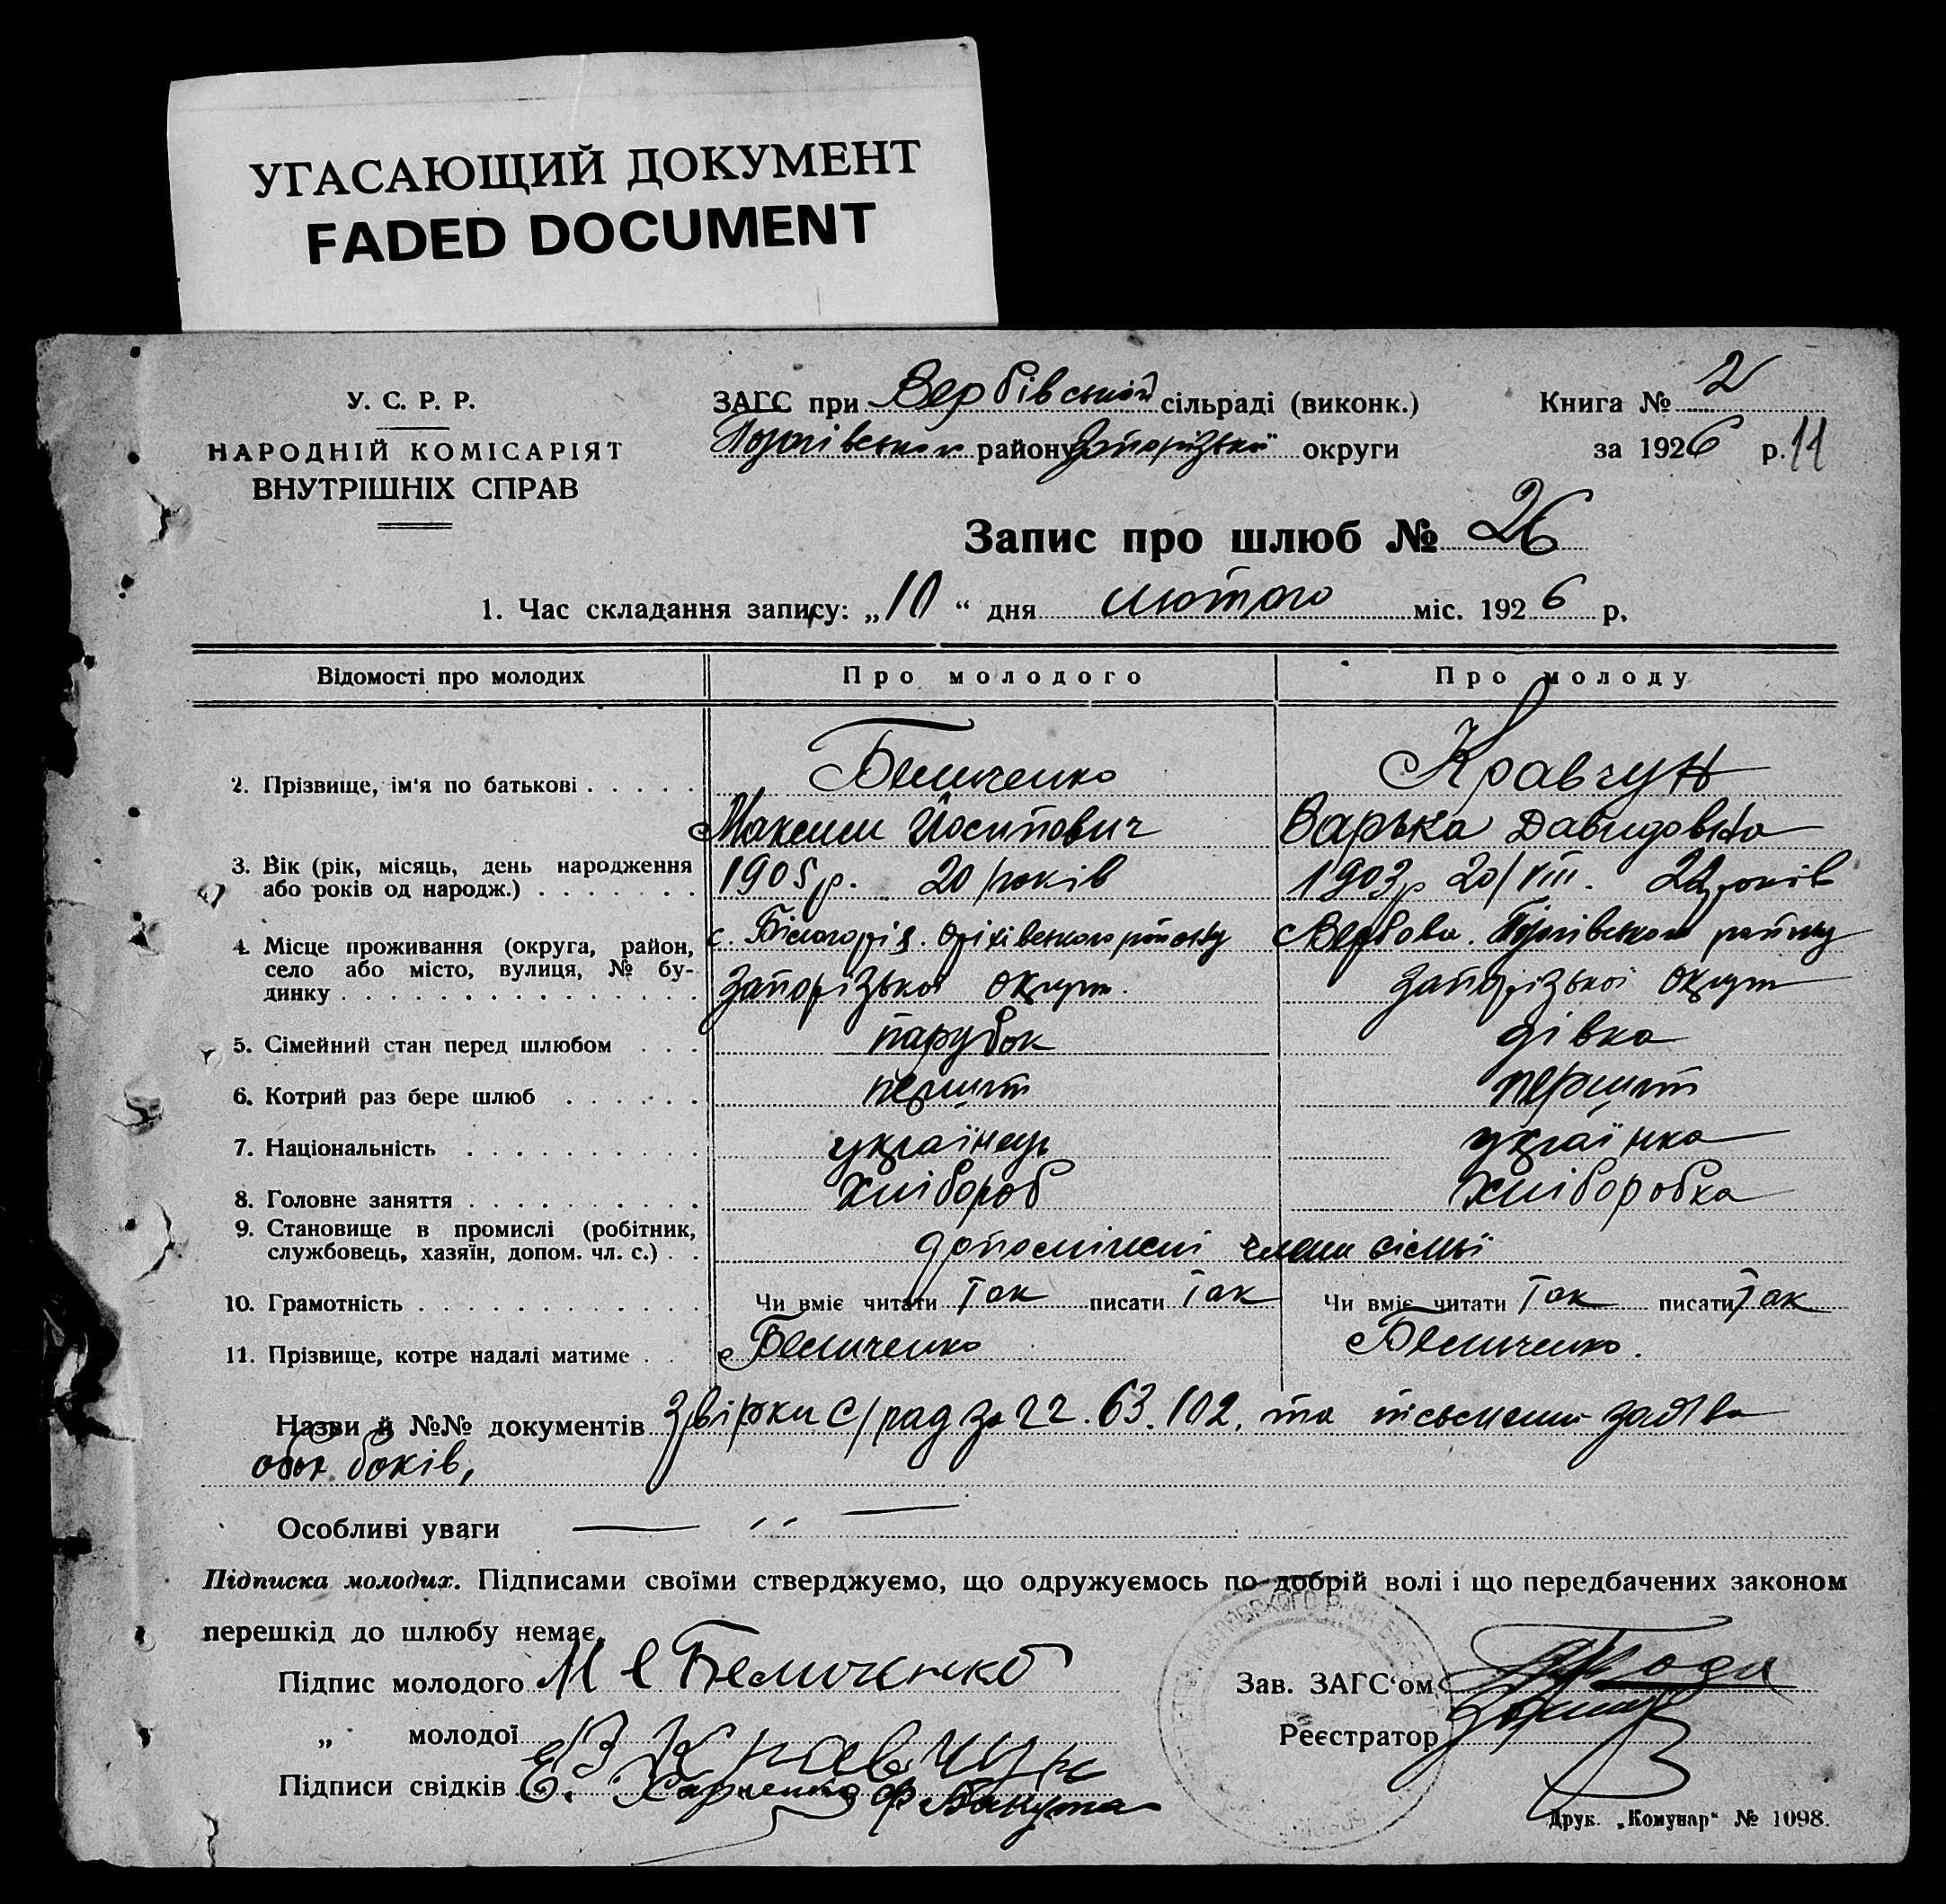 УГАСАЮЩИЙ ДОКУМЕНТ
FADED DOCUMENT
У. С. Р. Р.
НАРОДНІЙ КОМІСАРІЯТ
ВНУТРІШНІХ СПРАВ
ЗАГС при Вербівській сільраді (виконк.)
району Запорізької округи
Книга № 2
за 1926 р. 11
Запис про шлюб № 26
1. Час складання запису: „10“ дня лютого міс. 1926 р.
Відомості про молодих
Про молодого
Про молоду
2. Прізвище, ім'я по батькові
Беличенко
Максим Йосипович
Кравчун
Варька Давидовна
3. Вік (рік, місяць, день народження
або років од народж.)
1905 р. 20 років
1903 р 20/VIII. 22 років
4. Місце проживання (округа, район,
село або місто, вулиця, № бу-
динку
с. Білогорія. Оріхівського району
Запорізької округи.
Вербова. району
Запорізької округи
5. Сімейний стан перед шлюбом
парубок
дівка
6. Котрий раз бере шлюб
перший
перший
7. Національність
українець
українка
8. Головне заняття
хлібороб
хліборобка
9. Становище в промислі (робітник,
службовець, хазяїн, допом. чл. с.)
допоміжні члени сісмьї
10. Грамотність
Чи вміє читати Так писати Так
Чи вміє читати Так писати Так
11. Прізвище, котре надалі матиме
Беличенко
Беличенко.
Назви й №№ документів Звірки с/рад за 22. 63. 102. та письменні заява
обох боків,
Особливі уваги — „ —
Підписка молодих. Підписами своїми стверджуємо, що одружуємось по добрій волі і що передбачених законом
перешкід до шлюбу немає.
Підпис молодого М Беличенко
„ молодої В Кравчун
Підписи свідків Харченко
Зав. ЗАГС'ом
Реєстратор
Друк. „Комунар“ № 1098.